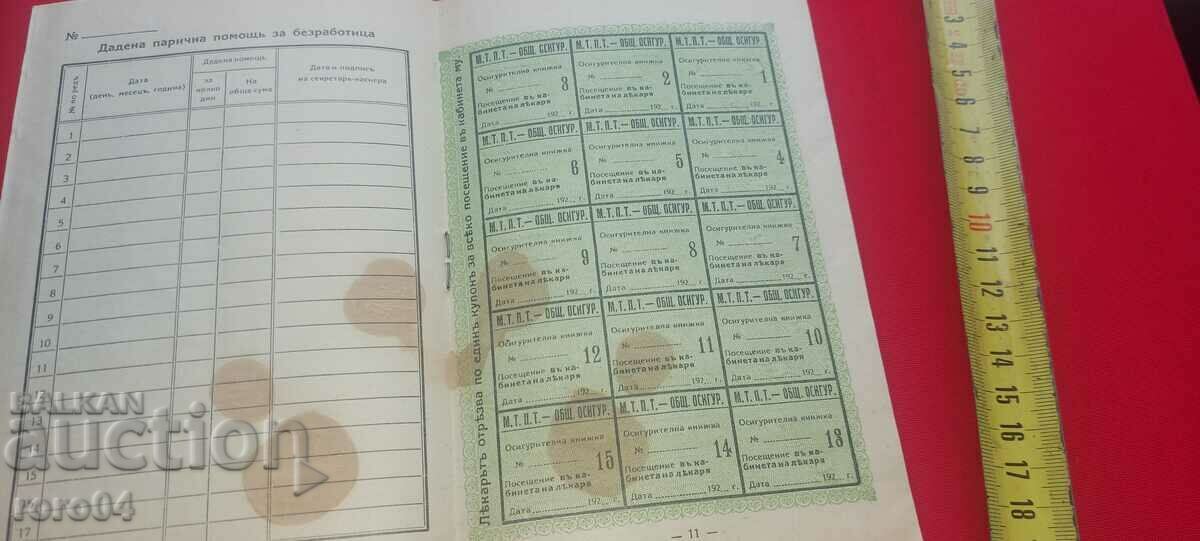 №
Дадена парична помощь за безработица
№ по редъ
Дата
(день, месецъ, година)
Дадена помощь
за
колко
дни
На
обща сума
Дата и подпись
на секретарь-касиера
1
2
3
4
5
6
7
8
9
10
11
12
13
15
17
Лѣкарьтъ отрѣзва по единъ купонъ за всѣко посещение въ кабинета му.
М. Т. П. Т. — ОБЩ. ОСИГУР.
Осигурителна книжка
№
3
Посещение въ ка-
бинета на лѣкаря
Дата 192 г.
М. Т. П. Т. — ОБЩ. ОСИГУР.
Осигурителна книжка
№
2
Посещение въ ка-
бинета на лѣкаря
Дата 192 г.
М. Т. П. Т. — ОБЩ. ОСИГУР.
Осигурителна книжка
№
1
Посещение въ ка-
бинета на лѣкаря
Дата 192 г.
М. Т. П. Т. — ОБЩ. ОСИГУР.
Осигурителна книжка
№
6
Посещение въ ка-
бинета на лѣкаря
Дата 192 г.
М. Т. П. Т. — ОБЩ. ОСИГУР.
Осигурителна книжка
№
5
Посещение въ ка-
бинета на лѣкаря
Дата 192 г.
М. Т. П. Т. — ОБЩ. ОСИГУР.
Осигурителна книжка
№
4
Посещение въ ка-
бинета на лѣкаря
Дата 192 г.
М. Т. П. Т. — ОБЩ. ОСИГУР.
Осигурителна книжка
№
9
Посещение въ ка-
бинета на лѣкаря
Дата 192 г.
М. Т. П. Т. — ОБЩ. ОСИГУР.
Осигурителна книжка
№
8
Посещение въ ка-
бинета на лѣкаря
Дата 192 г.
М. Т. П. Т. — ОБЩ. ОСИГУР.
Осигурителна книжка
№
7
Посещение въ ка-
бинета на лѣкаря
Дата 192 г.
М. Т. П. Т. — ОБЩ. ОСИГУР.
Осигурителна книжка
№
12
Посещение въ ка-
бинета на лѣкаря
Дата 192 г.
М. Т. П. Т. — ОБЩ. ОСИГУР.
Осигурителна книжка
№
11
Посещение въ ка-
бинета на лѣкаря
Дата 192 г.
М. Т. П. Т. — ОБЩ. ОСИГУР.
Осигурителна книжка
№
10
Посещение въ ка-
бинета на лѣкаря
Дата 192 г.
М. Т. П. Т. — ОБЩ. ОСИГУР.
Осигурителна книжка
№
15
Посещение въ ка-
бинета на лѣкаря
Дата 192 г.
М. Т. П. Т. — ОБЩ. ОСИГУР.
Осигурителна книжка
№
14
Посещение въ ка-
бинета на лѣкаря
Дата 192 г.
М. Т. П. Т. — ОБЩ. ОСИГУР.
Осигурителна книжка
№
13
Посещение въ ка-
бинета на лѣкаря
Дата 192 г.
— 11 —
3
4
5
6
7
8
9
10
11
12
13
14
15
16
17
18
BALKAN
auction
roro04